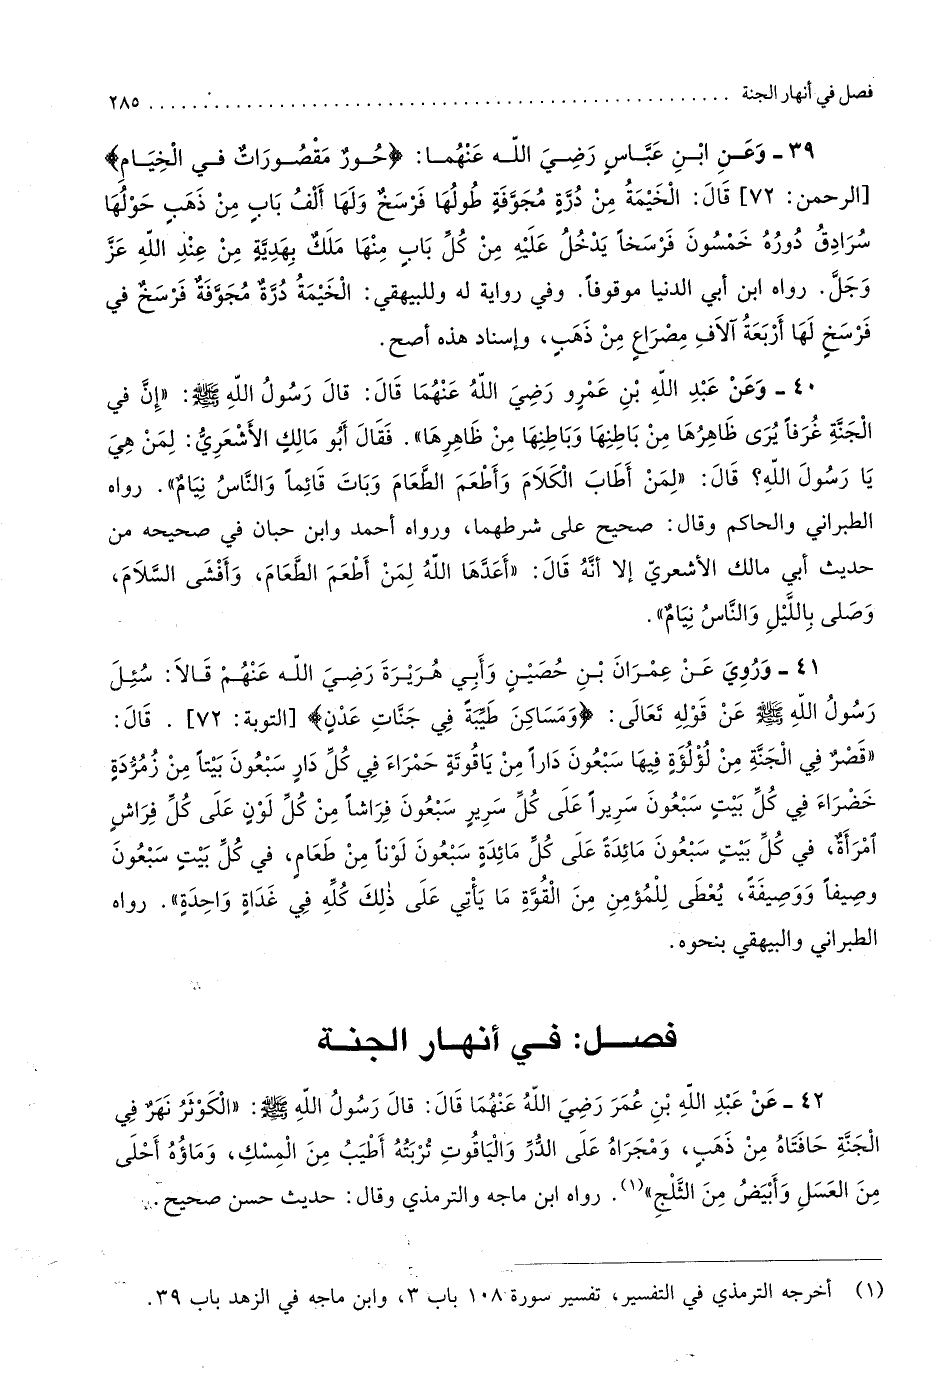 فصل في أنهار الجنة ..................................................... ٢٨٥
٣٩ ـ وَعَـنِ ابْـنِ عَبَّـاسٍ رَضِـيَ اللّـه عَنْهُمـا: ﴿حُـورٌ مَقْصُـورَاتٌ فـي الْخِيَـامِ﴾
[الرحمن: ٧٢] قَالَ: الْخَيْمَةُ مِنْ دُرَّةٍ مُجَوَّفَةٍ طُولُهَا فَرْسَخٌ وَلَهَا أَلْفُ بَابٍ مِنْ ذَهَبٍ حَوْلُهَا
سُرَادِقُ دُورُهُ خَمْسُونَ فَرْسَخاً يَدْخُلُ عَلَيْهِ مِنْ كُلِّ بَابٍ مِنْهَا مَلَكٌ بِهَدِيَّةٍ مِنْ عِنْدِ اللّهِ عَزَّ
وَجَلَّ. رواه ابن أبي الدنيا موقوفاً. وفي رواية له وللبيهقي: الْخَيْمَةُ دُرَّةٌ مُجَوَّفَةٌ فَرْسَخٌ في
فَرْسَخٍ لَهَا أَرْبَعَةُ آلاَفِ مِصْرَاعٍ مِنْ ذَهَبٍ، وإسناد هذه أصح.
٤٠ ـ وَعَنْ عَبْدِ اللّهِ بْنِ عَمْرٍو رَضِيَ اللّهُ عَنْهُمَا قَالَ: قالَ رَسُولُ اللّهِ ﷺ: «إِنَّ في
الْجَنَّةِ غُرَفاً يُرَى ظَاهِرُهَا مِنْ بَاطِنِهَا وَبَاطِنِهَا مِنْ ظَاهِرِهَا». فَقَالَ أَبُو مَالِكٍ الأَشْعَرِيُّ: لِمَنْ هِيَ
يَا رَسُولَ اللّهِ؟ قَالَ: «لِمَنْ أَطَابَ الْكَلاَمَ وَأَطْعَمَ الطَّعَامَ وَبَاتَ قَائِماً وَالنَّاسُ نِيَامٌ». رواه
الطبراني والحاكم وقال: صحيح على شرطهما، ورواه أحمد وابن حبان في صحيحه من
حديث أبي مالك الأشعريّ إلا أنَّهُ قَالَ: «أَعَدَّهَا اللّهُ لِمَنْ أَطْعَمَ الطَّعَامَ، وَأَفْشَى السَّلاَمَ،
وَصَلى بِاللَّيْلِ وَالنَّاسُ نِيَامٌ».
٤١ ـ وَرُوِيَ عَـنْ عِمْـرَانَ بْـنِ حُصَيْـنٍ وَأَبِـي هُـرَيْـرَةَ رَضِـيَ اللّـه عَنْهُـمْ قَـالاَ: سُئِـلَ
رَسُولُ اللّهِ ﷺ عَنْ قَوْلِهِ تَعَالَى: ﴿وَمَسَاكِنَ طَيِّبَةً فِي جَنَّاتِ عَدْنٍ﴾ [التوبة: ٧٢] . قَالَ:
«قَصْرٌ فِي الْجَنَّةِ مِنْ لُؤْلُؤَةٍ فِيهَا سَبْعُونَ دَاراً مِنْ يَاقُوتَةٍ حَمْرَاءَ فِي كُلِّ دَارٍ سَبْعُونَ بَيْتاً مِنْ زُمُرُّدَةٍ
خَضْرَاءَ فِي كُلِّ بَيْتٍ سَبْعُونَ سَرِيراً عَلَى كُلِّ سَرِيرٍ سَبْعُونَ فِرَاشاً مِنْ كُلِّ لَوْنٍ عَلَى كُلِّ فِرَاشٍ
ٱمْرَأَةٌ، في كُلِّ بَيْتٍ سَبْعُونَ مَائِدَةً عَلَى كُلِّ مَائِدَةٍ سَبْعُونَ لَوْناً مِنْ طَعَامٍ، في كُلِّ بَيْتٍ سَبْعُونَ
وصِيفاً وَوَصِيفَةً، يُعْطَى لِلْمُؤمِنِ مِنَ الْقُوَّةِ مَا يَأْتِي عَلَى ذٰلِكَ كُلِّهِ فِي غَدَاةٍ وَاحِدَةٍ». رواه
الطبراني والبيهقي بنحوه.
فصـــل: فـي أنهـار الجنـة
٤٢ ـ عَنْ عَبْدِ اللّهِ بْنِ عُمَرَ رَضِيَ اللّهُ عَنْهُمَا قَالَ: قالَ رَسُولُ اللّهِ ﷺ: «الْكَوْثَرُ نَهَرٌ فِي
الْجَنَّةِ حَافَتَاهُ مِنْ ذَهَبٍ، وَمْجَرَاهُ عَلَى الدُّرِّ وَالْيَاقُوتِ تُرْبَتُهُ أَطْيَبُ مِنَ الْمِسْكِ، وَمَاؤُهُ أَحْلَى
مِنَ العَسَلِ وَأَبْيَضُ مِنَ الثَّلْجِ»(١). رواه ابن ماجه والترمذي وقال: حديث حسن صحيح.
(١) أخرجه الترمذي في التفسير، تفسير سورة ١٠٨ باب ٣، وابن ماجه في الزهد باب ٣٩.